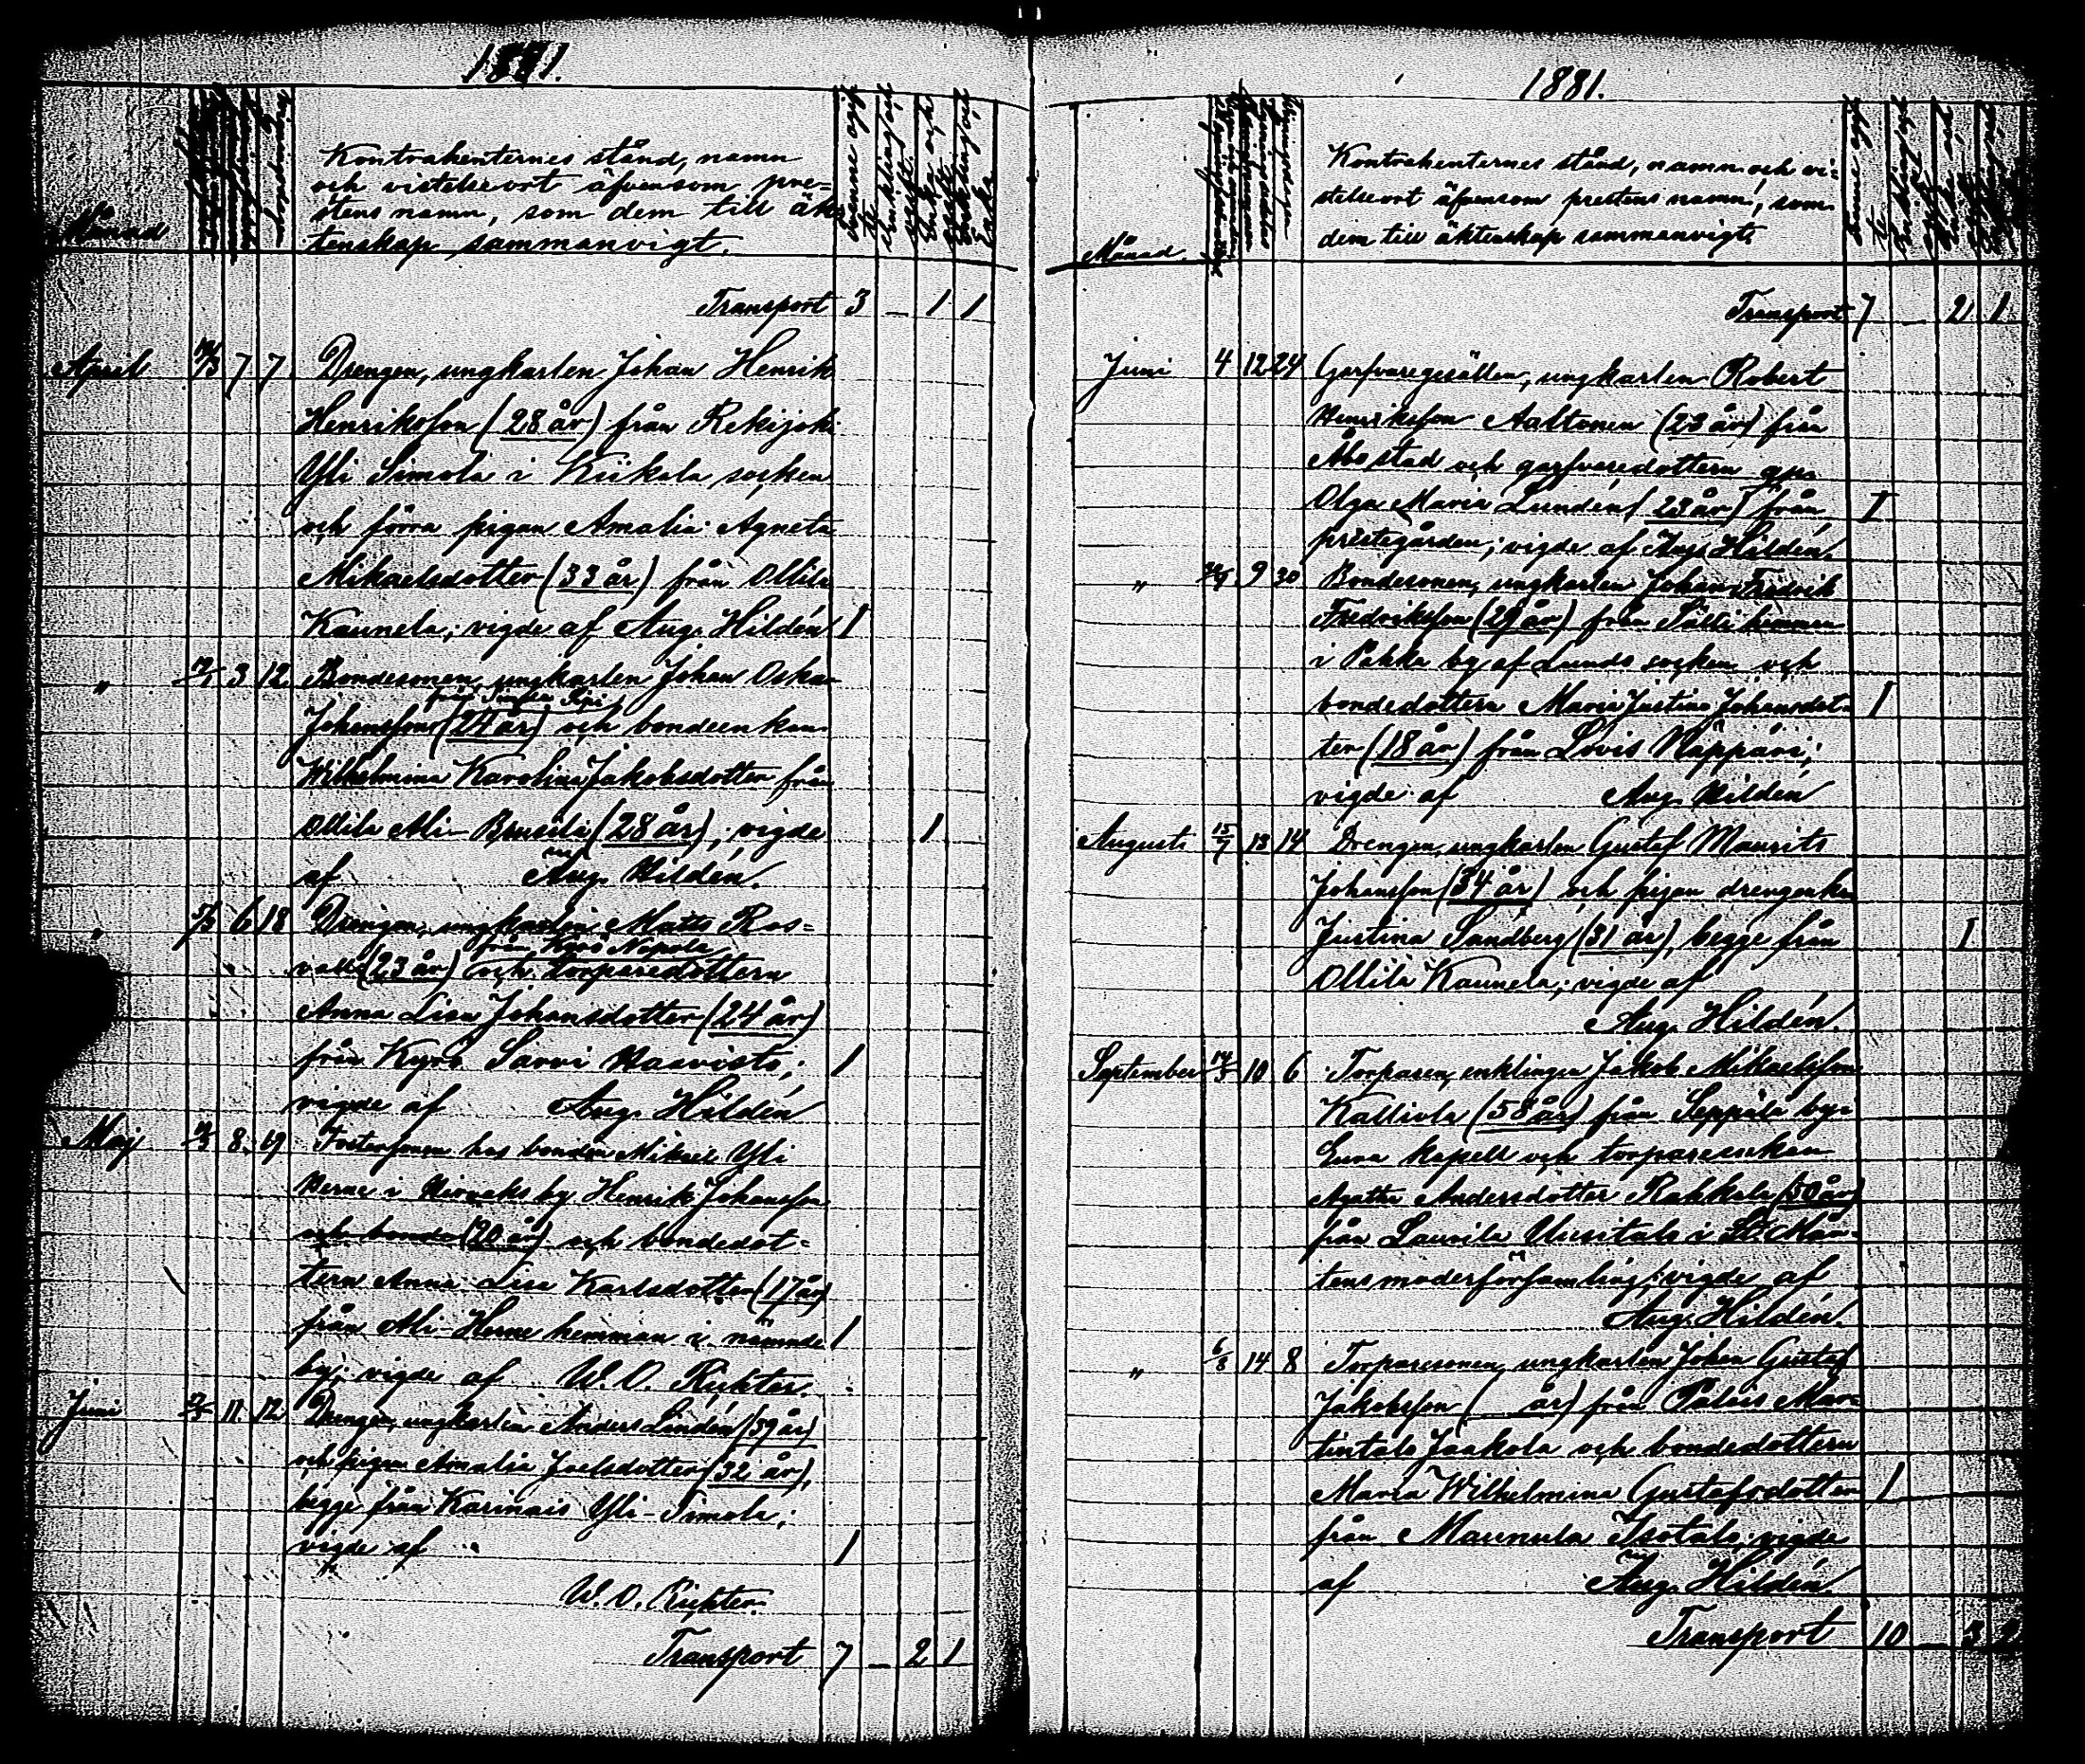 1881.
Månad
Kontrahenternes stånd, namn
och vistelseort äfvensom pre-
stens namn, som dem till äk-
tenskap sammanvigt.
Transport 3 — 1 1
April 7 7 Drengen, ungkarlen Johan Henrik
Henriksson (28 år) från Rekijoki
Yli Simola i Kiikala socken
och förra pigan Amalia Agneta
Mikaelsdotter (33 år) från Ollila
Kaunela; vigde af Aug. Hildén 1
" 3 12 Bondesonen, ungkarlen Johan Oskar
Johansson (24 år) och bondeenkan
Wilhelmina Karolina Jakobsdotter från
Ollila Ali- (28 år); vigde 1
af Aug. Hildén.
" 6 18 Drengen, ungkarlen Matts Ros-
från Kyrö Nopola
vall (23 år) och torparedottern
Anna Lisa Johansdotter (24 år)
från Kyrö Sarvi Haavisto; 1
vigde af Aug. Hildén
Maj 8 19 Fostersonen hos bonden Mikael Yli
Herne i by Henrik Johansson
och bonde (20 år) och bondedot-
tern Anna Lisa Karlsdotter (17 år)
från Ali-Herne hemman i nämnde 1
by; vigde af W. O. Richter.
Juni 11 12 Drengen, ungkarlen Anders Lindén (39 år)
och pigan Amalia Joelsdotter (32 år),
begge från Karinais Yli-Simola;
vigde af 1
W. O. Richter.
Transport 7 — 2 1
1881.
Månad
Kontrahenternes stånd, namn och vi-
stelseort äfvensom prestens namn, som
dem till äktenskap sammanvigt.
Transport 7 — 2 1
Juni 4 12 24 Garfvaregesällen, ungkarlen Robert
Henriksson Aaltonen (23 år) från
Åbo stad och garfveredottern
Olga Maria Lundén (23 år) från 1
prestegården; vigde af Aug. Hildén.
" 9 30 Bondesonen, ungkarlen Johan Fredrik
Fredriksson (29 år) från Sälli hemman
i Pakka by af Lundo socken och
bondedottern Maria Justina Johansdot- 1
ter (18 år) från Lovis Näppäri;
vigde af Aug. Hildén
Augusti 15/7 13 14 Drengen, ungkarlen Gustaf Maurits
Johansson (34 år) och pigan drengenkan
Justina Sandberg (31 år), begge från 1
Ollila Kaunela; vigde af
Aug. Hildén.
September 10 6 Torparen, enklingen Jakob Mikaelsson
Kalliola (58 år) från Seppälä by i
Eura kapell och torpareenkan
Agatha Andersdotter Rahkala (50 år)
från Laurila Uusitalo i S:t Mår-
tens moderförsamling; vigde af
Aug. Hildén.
" 6/8 14 8 Torparesonen, ungkarlen Johan Gustaf
Jakobsson ( år) från Palois Mar-
tintalo Jaakola och bondedottern
Maria Wilhelmina Gustafsdotter 1
från Maunula Isotalo; vigde
af Aug. Hildén
Transport 10 — 3 2